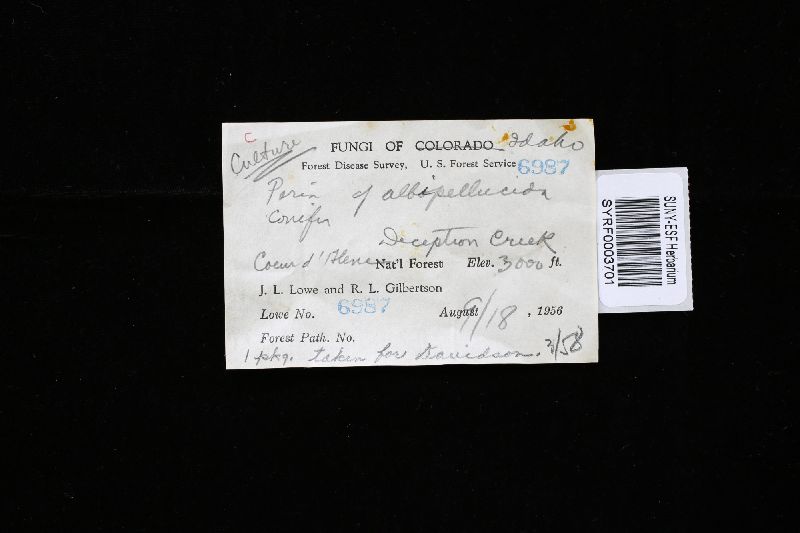 C
Culture
FUNGI OF COLORADO Idaho
Forest Disease Survey, U. S. Forest Service 6987
Poria cf albipellucida
conifer
Deception Creek
Coeur d'Alene Nat'l Forest Elev. 3000 ft.
J. L. Lowe and R. L. Gilbertson
Lowe No. 6987 August 9/18, 1956
Forest Path. No.
1 pkg. taken for Davidson. 2/58
SUNY-ESF Herbarium
SYRF0003701